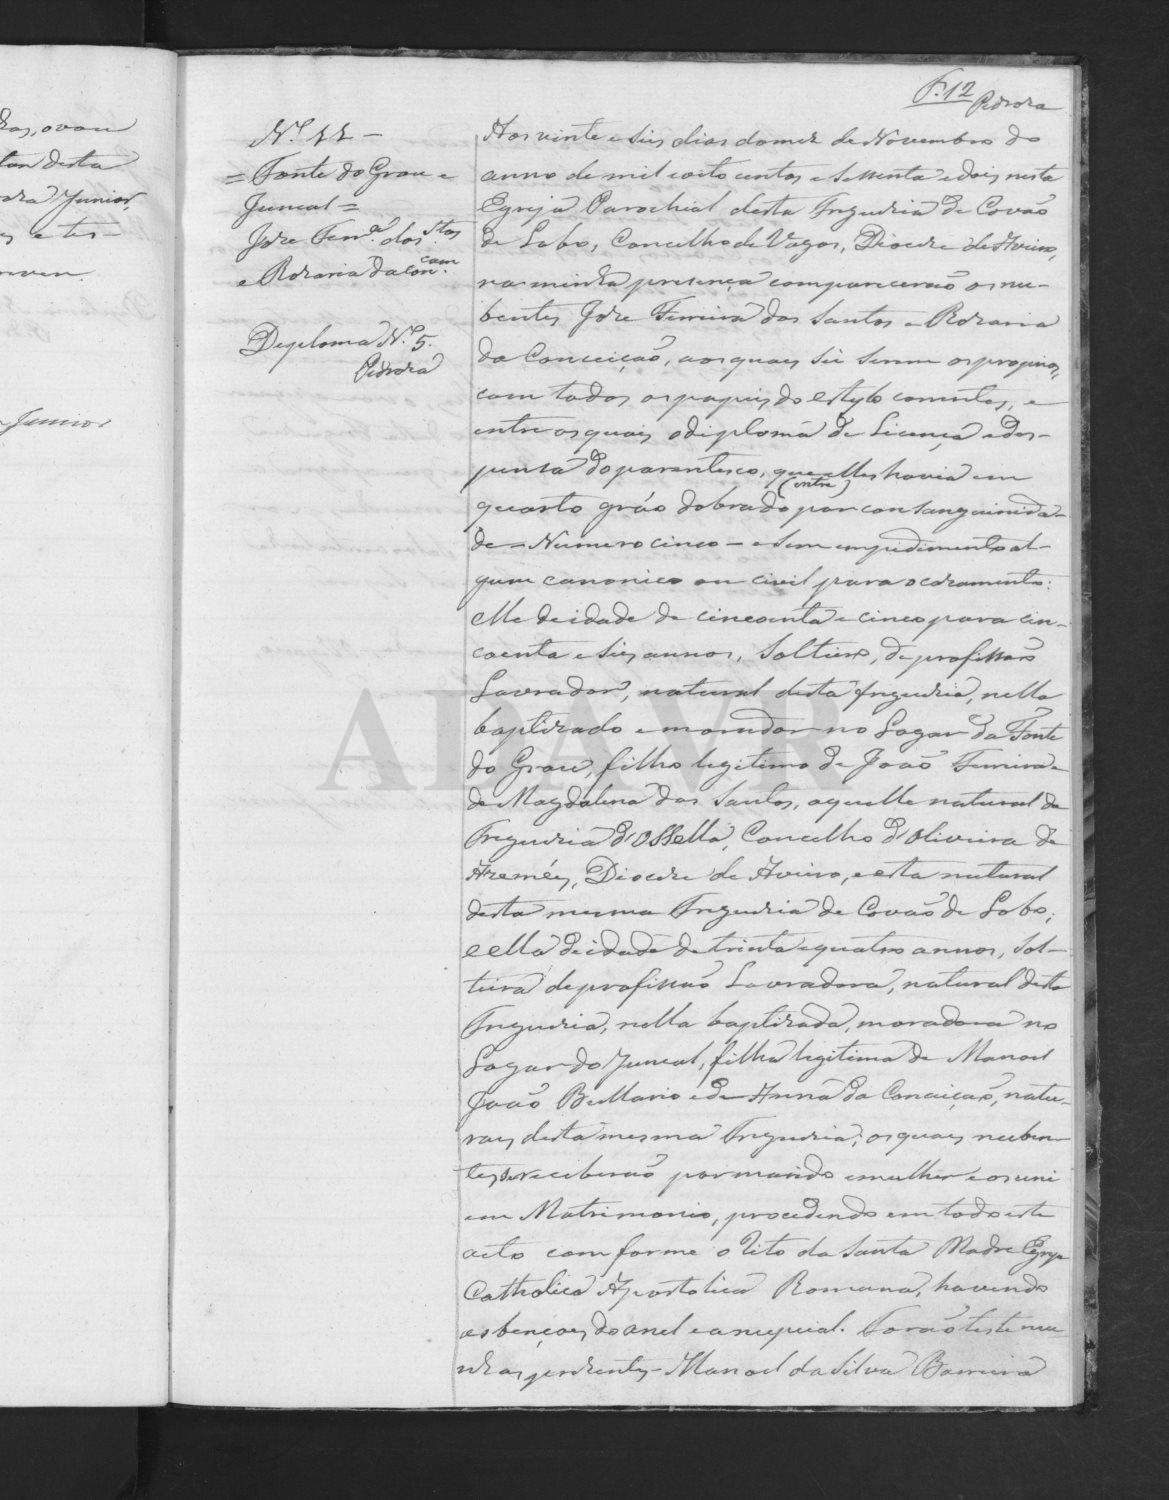 F. 12
Pedroza
Nº 11 –
= Fonte do Grou e
Juncal =
Joze Ferrª dos Stos
e Rozaria da Concam.
Deploma Nº 5.
Pedroza
Aos vinte e seis dias do mez de Novembro do
anno de mil oito centos e sessenta e dois nesta
Egreja Parochial desta Freguezia de Covão
de Lobo, Concelho de Vagos, Diocese de Aveiro,
na minha presença comparecerão os nu-
bentes Joze Ferreira dos Santos e Rozaria
da Conceição, aos quaes sei serem os proprios,
com todos os papeis do estylo correntes, e
entre os quais o diploma de Licença e des-
pensa do parentesco, que elles havia em
(entre)
quarto gráo dobrado por consanguinida-
de = Numero cinco = e sem empedimento al-
gum canonico ou civil para o cazamento:
elle de idade de cincoenta e cinco para cin-
coenta e seis annos, solteiro, de profissão
Lavrador, natural desta freguezia, nella
baptizado e morador no Logar da Fonte
do Grou, filho legitimo de João Ferreira e
de Magdalena dos Santos, aquelle natural da
Freguezia d'Ossella, Concelho d'Oliveira de
Azeméis, Diocese de Aveiro, e esta natural
desta mesma Freguezia de Covão de Lobo;
e ella de idade de trinta e quatro annos, sol-
teira de profissão Lavradora, natural desta
Freguezia, nella baptizada, moradora no
Logar do Juncal, filha legitima de Manoel
João e de Anna da Conceição, natu-
raes desta mesma Freguezia; os quaes nuben-
tes se receberão por marido e mulher e os uni
em Matrimonio, procedendo em todo este
acto conforme o rito da Santa Madre Egreja
Catholica Apostolica Romana, havendo
as bençoes do anel e a nupcial. Forão testemu-
nhas prezentes – Manoel da Silva Barreira
ADAVR
zas, ovou
desta
Junior,
e tes-
Junior